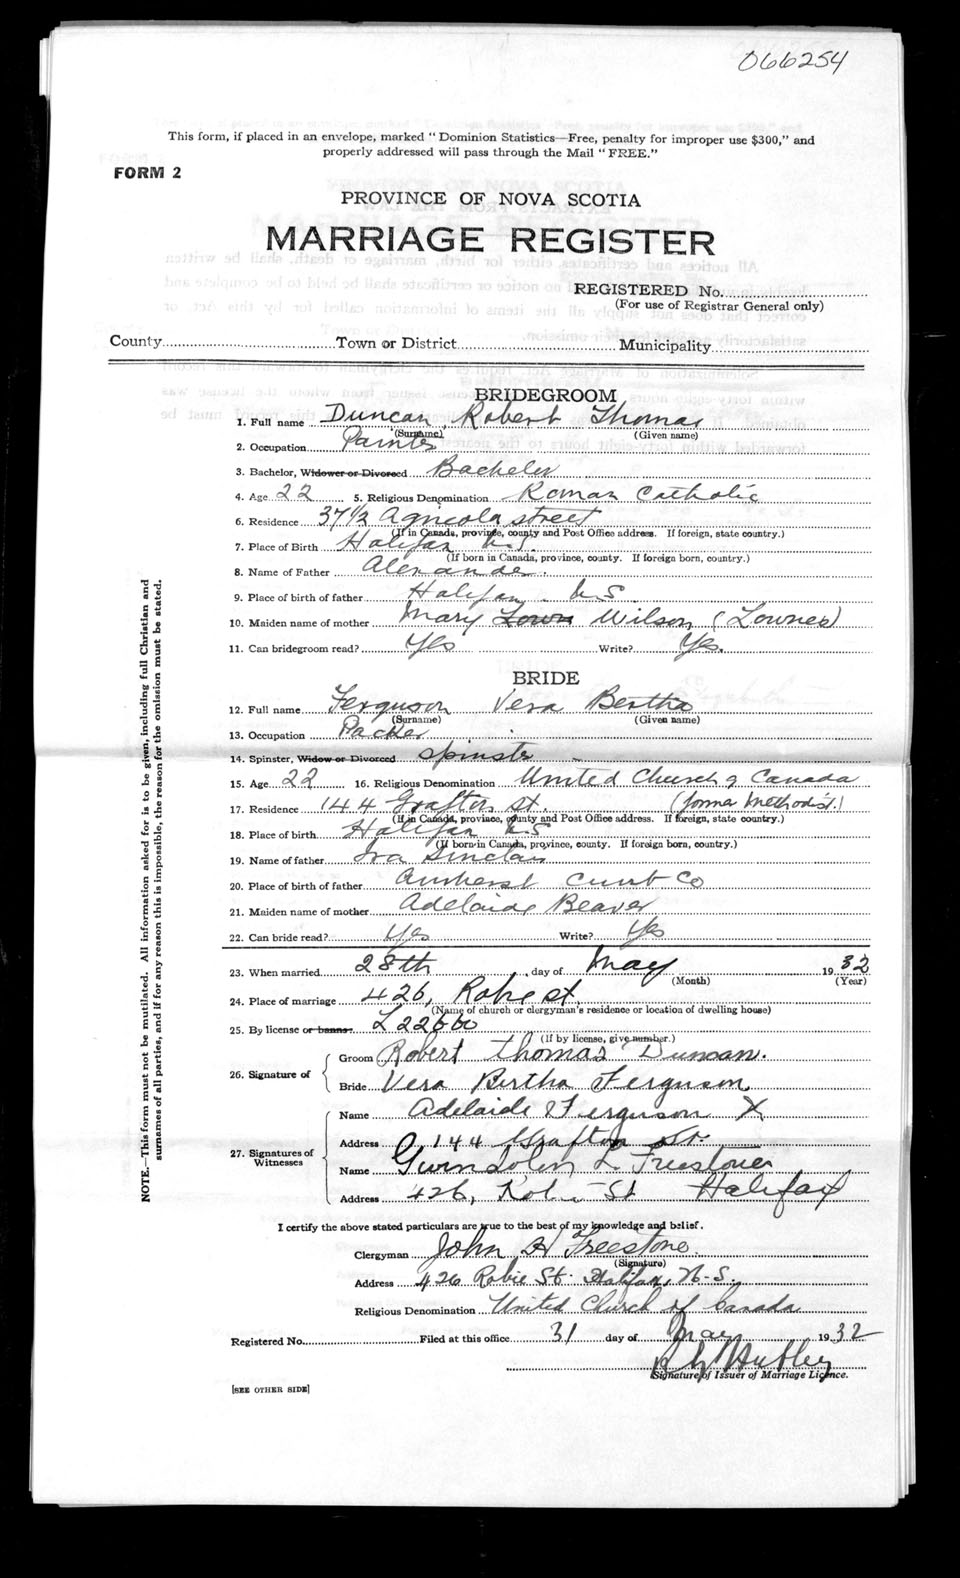 066254
This form, if placed in an envelope, marked "Dominion Statistics—Free, penalty for improper use $300," and
properly addressed will pass through the Mail "FREE."
FORM 2
PROVINCE OF NOVA SCOTIA
MARRIAGE REGISTER
REGISTERED No.
(For use of Registrar General only)
County Town or District Municipality
BRIDEGROOM
1. Full name Duncan, Robert Thomas
(Surname) (Given name)
2. Occupation Painter
3. Bachelor, Widower or Divorced Bachelor
4. Age 22 5. Religious Denomination Roman Catholic
6. Residence 37 1/2 Agricola street
(If in Canada, province, county and Post Office address. If foreign, state country.)
7. Place of Birth Halifax N.S.
(If born in Canada, province, county. If foreign born, country.)
8. Name of Father Alexander.
9. Place of birth of father Halifax N.S
10. Maiden name of mother Mary Lown Wilson (Lownes)
11. Can bridegroom read? Yes Write? Yes.
BRIDE
12. Full name Ferguson Vera Bertha
(Surname) (Given name)
13. Occupation Packer
14. Spinster, Widow or Divorced Spinster
15. Age 22 16. Religious Denomination United Church of Canada
17. Residence 144 Grafton St. (former Methodist)
(If in Canada, province, county and Post Office address. If foreign, state country.)
18. Place of birth Halifax N.S
(If born in Canada, province, county. If foreign born, country.)
19. Name of father Ira Sinclair
20. Place of birth of father Amherst Cumb Co
21. Maiden name of mother Adelaide Beaver
22. Can bride read? Yes Write? Yes
23. When married 28th day of May 1932
(Month) (Year)
24. Place of marriage 426, Robie st.
(Name of church or clergyman's residence or location of dwelling house)
25. By license or banns: L22660
(If by license, give number.)
26. Signature of
Groom Robert Thomas Duncan.
Bride Vera Bertha Ferguson
27. Signatures of Witnesses
Name Adelaide Ferguson X
Address 144 Grafton St.
Name Gwendolen L Freestone
Address 426, Robie St Halifax
I certify the above stated particulars are true to the best of my knowledge and belief.
Clergyman John H Freestone
(Signature)
Address 426 Robie St. Halifax, N.S.
Religious Denomination United Church of Canada
Registered No. Filed at this office 31 day of May 1932
Hubley
Signature of Issuer of Marriage Licence.
[SEE OTHER SIDE]
NOTE.—This form must not be mutilated. All information asked for is to be given, including full Christian and
surnames of all parties, and if for any reason this is impossible, the reason for the omission must be stated.